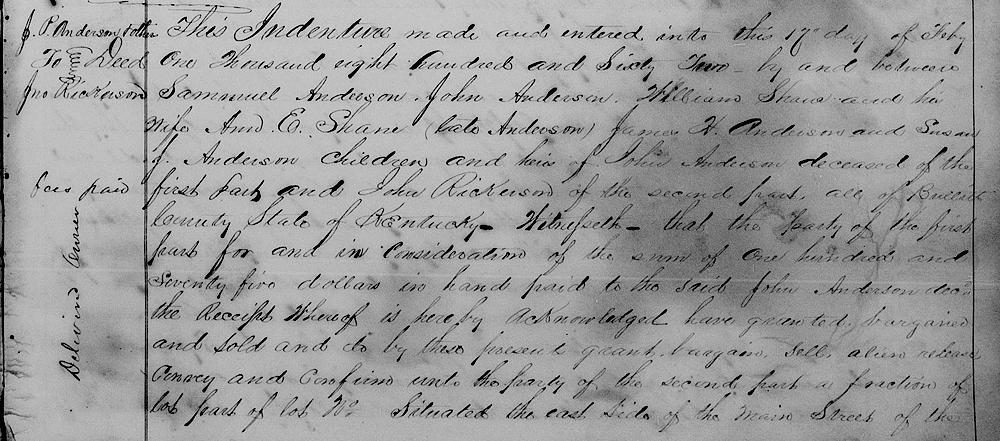 J. P. Anderson & other
To Deed
Jno Rickerson
fees paid
Delivered Owner
This Indenture made and entered into this 17th day of Feby
One Thousand eight hundred and Sixty Two - by and between
Sammuel Anderson John Anderson. William Shane and his
Wife Ann. E. Shane (late Anderson) James H. Anderson and Susan
J. Anderson Children and heirs of John Anderson deceased of the
first part and John Rickerson of the second part, all of Bullitt
County State of Kentucky - Witnesseth - that the Party of the first
part for and in Consideration of the sum of One hundred and
Seventy five dollars in hand paid to the said John Anderson decd
the Receipt Whereof is hereby Acknowledged have granted, bargained
and sold and do by these present grant, bargain, sell, alien release
Convey and Confirm unto the party of the second part a fraction of
lot part of lot No Situated the east Side of the Main Street of the